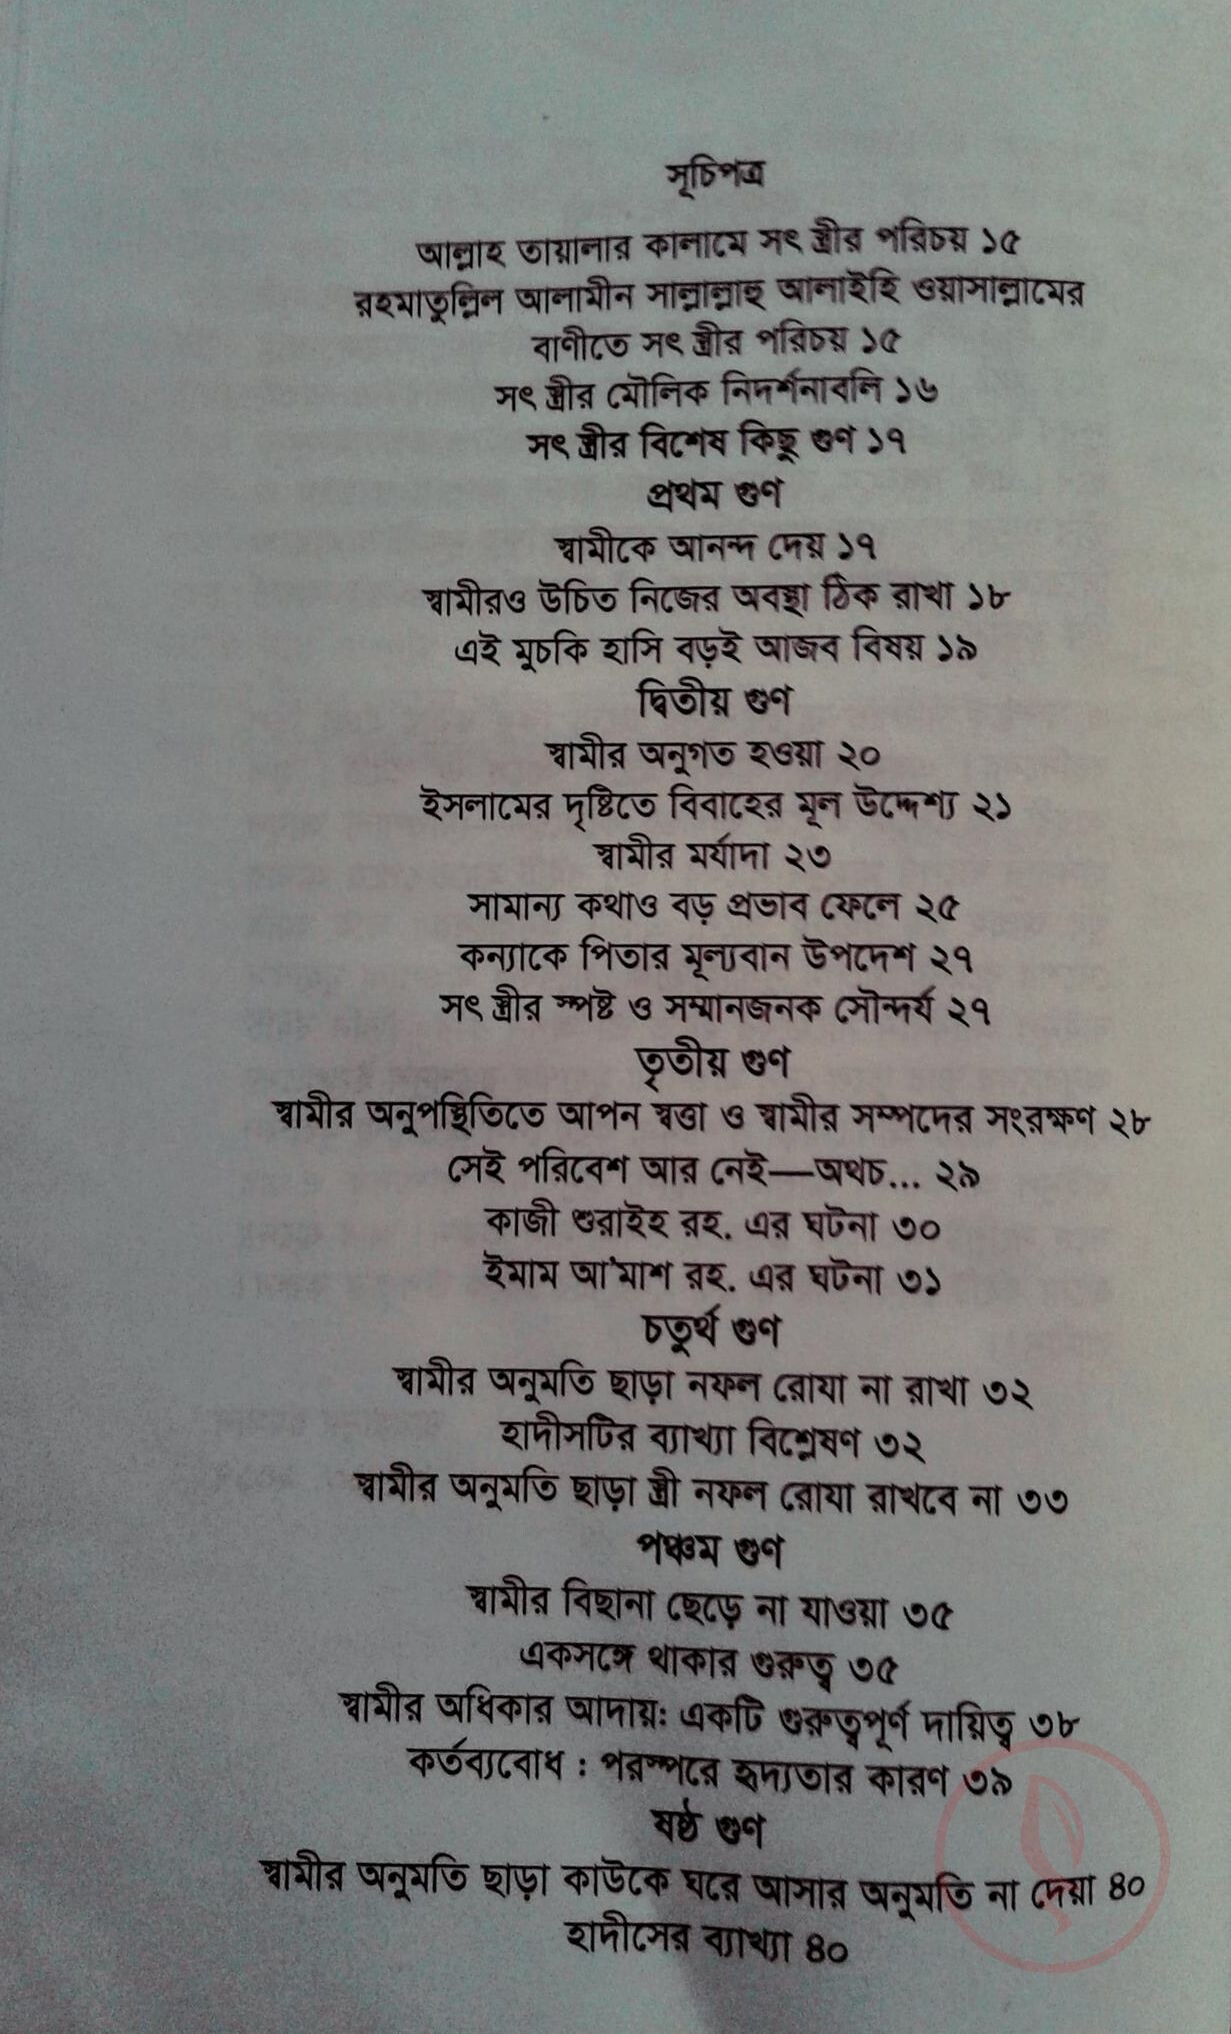 সূচিপত্র
আল্লাহ তায়ালার কালামে সৎ স্ত্রীর পরিচয় ১৫
রহমাতুল্লিল আলামীন সাল্লাল্লাহু আলাইহি ওয়াসাল্লামের
বাণীতে সৎ স্ত্রীর পরিচয় ১৫
সৎ স্ত্রীর মৌলিক নিদর্শনাবলি ১৬
সৎ স্ত্রীর বিশেষ কিছু গুণ ১৭
প্রথম গুণ
স্বামীকে আনন্দ দেয় ১৭
স্বামীরও উচিত নিজের অবস্থা ঠিক রাখা ১৮
এই মুচকি হাসি বড়ই আজব বিষয় ১৯
দ্বিতীয় গুণ
স্বামীর অনুগত হওয়া ২০
ইসলামের দৃষ্টিতে বিবাহের মূল উদ্দেশ্য ২১
স্বামীর মর্যাদা ২৩
সামান্য কথাও বড় প্রভাব ফেলে ২৫
কন্যাকে পিতার মূল্যবান উপদেশ ২৭
সৎ স্ত্রীর স্পষ্ট ও সম্মানজনক সৌন্দর্য ২৭
তৃতীয় গুণ
স্বামীর অনুপস্থিতিতে আপন স্বত্তা ও স্বামীর সম্পদের সংরক্ষণ ২৮
সেই পরিবেশ আর নেই—অথচ... ২৯
কাজী শুরাইহ রহ. এর ঘটনা ৩০
ইমাম আ'মাশ রহ. এর ঘটনা ৩১
চতুর্থ গুণ
স্বামীর অনুমতি ছাড়া নফল রোযা না রাখা ৩২
হাদীসটির ব্যাখ্যা বিশ্লেষণ ৩২
স্বামীর অনুমতি ছাড়া স্ত্রী নফল রোযা রাখবে না ৩৩
পঞ্চম গুণ
স্বামীর বিছানা ছেড়ে না যাওয়া ৩৫
একসঙ্গে থাকার গুরুত্ব ৩৫
স্বামীর অধিকার আদায়: একটি গুরুত্বপূর্ণ দায়িত্ব ৩৮
কর্তব্যবোধ : পরস্পরে হৃদ্যতার কারণ ৩৯
ষষ্ঠ গুণ
স্বামীর অনুমতি ছাড়া কাউকে ঘরে আসার অনুমতি না দেয়া ৪০
হাদীসের ব্যাখ্যা ৪০